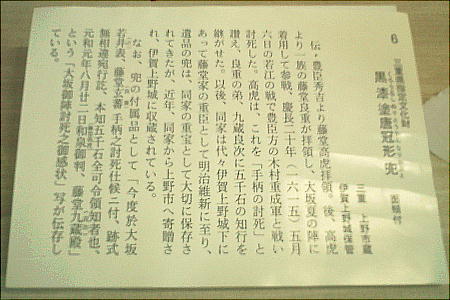 6 三重県指定文化財
黒漆塗唐冠形兜 面頬付
三重 上野市蔵
伊賀上野城保管
伝・豊臣秀吉より藤堂高虎拝領。後、高虎
より一族の藤堂良重が拝領し、大坂夏の陣に
着用して参戦、慶長二十年(一六一五)五月
六日の若江の戦で豊臣方の木村重成軍と戦い
討死した。高虎は、これを「手柄の討死」と
讃え、良重の弟、九蔵良次に五千石の知行を
継がせた。以後、同家は代々伊賀上野城下に
あって藤堂家の重臣として明治維新に至り、
遺品の兜は、同家の重宝として大切に保存さ
れてきたが、近年、同家から上野市へ寄贈さ
れ、伊賀上野城に収蔵されている。
なお、兜の付属品として「今度於大坂
若井表、藤堂玄蕃 手柄之討死仕候ニ付、跡式
無相違宛行訖、本知五千石全可令領知者也、
元和元年八月廿二日和泉御判、藤堂九蔵殿」
という「大坂御陣討死之御感状」写が伝存し
ている。